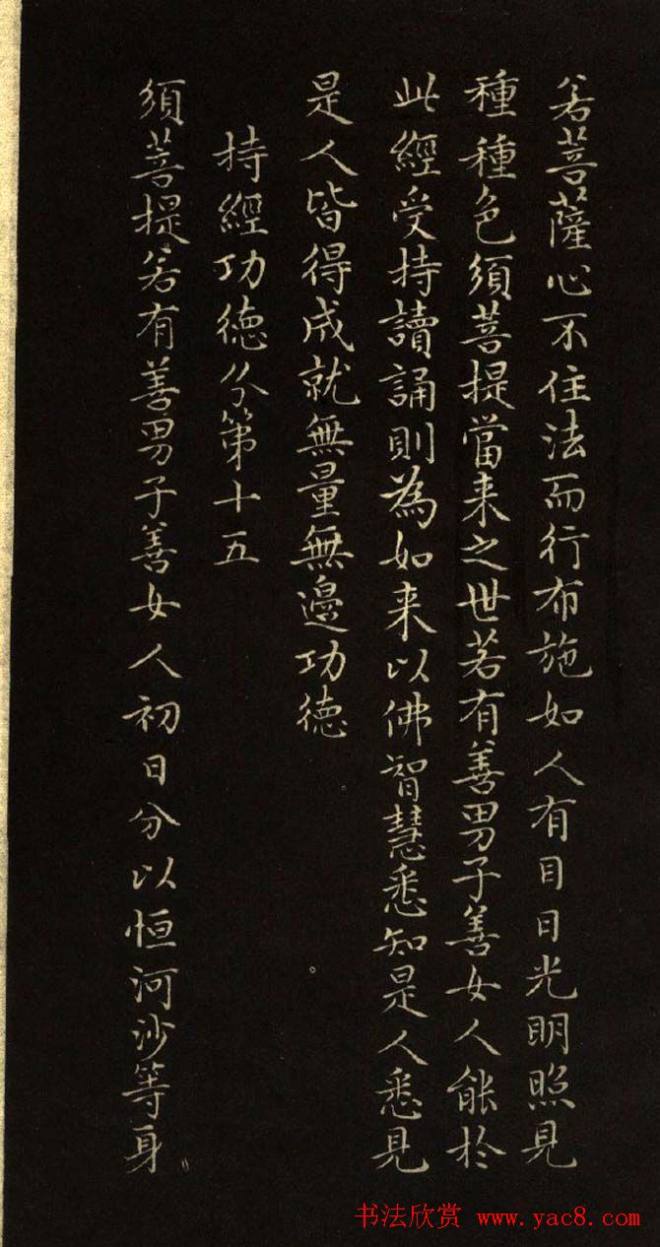 若菩薩心不住法而行布施如人有目日光明照見
種種色須菩提當来之世若有善男子善女人能於
此經受持讀誦則為如来以佛智慧悉知是人悉見
是人皆得成就無量無邊功德
持經功德分第十五
須菩提若有善男子善女人初日分以恒河沙等身
书法欣赏 www.yac8.com